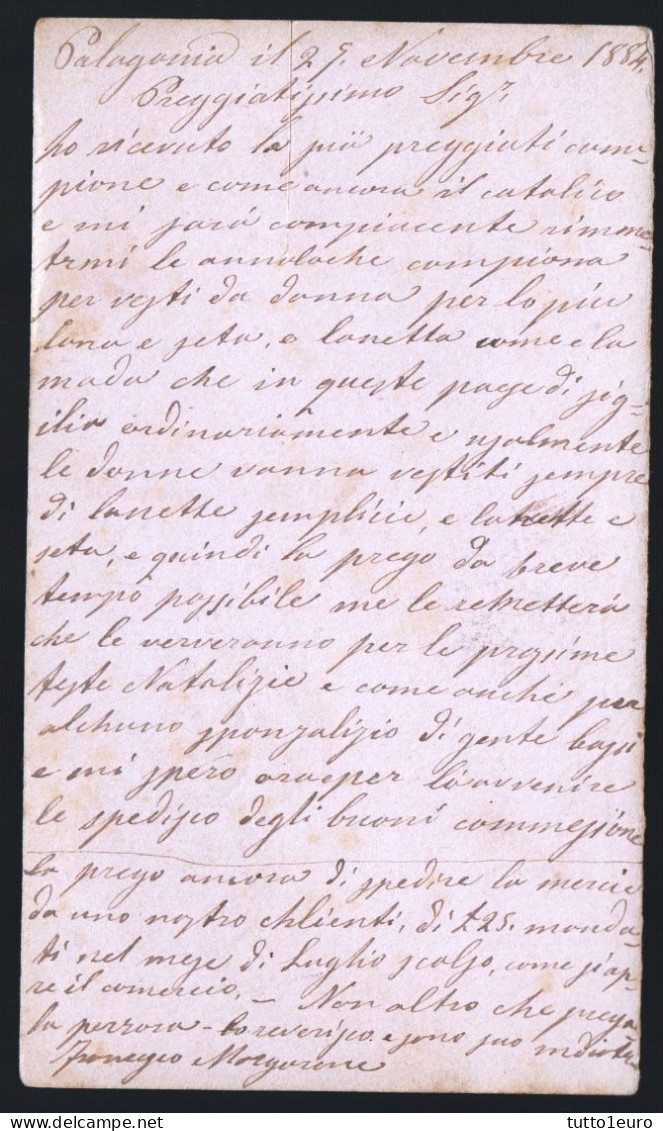 Palagonia il 29. Novembre 1884.
Preggiatissimo Sigr.
ho ricevuto la più preggiati cam-
pione e come ancora il catalico
e mi sará compiacente rimme-
termi le compiona
per vesti da donna per lo più
lana e seta, e lanetta come e la
moda che in queste paese di sig-
ilia ordinariamente e usalmente
le donne vanna vestiti sempre
di lanette semplicie, e lanette e
seta, e quindi la prego da breve
tempo possibile me le remetterà
che le serveranno per le prossime
feste Natalizie e come anchi per
alchuno sponzalizio di gente bassi
e mi spero ora e per lo avvenire
le spedisco degli buoni commessione
la prego ancora di spedire la mercie
da uno nostro chlienti, di £25. manda-
ti nel mese di Luglio scalso, come si ap-
re il comercio. — Non altro che prega
la perzona - lo reverisco e sono suo